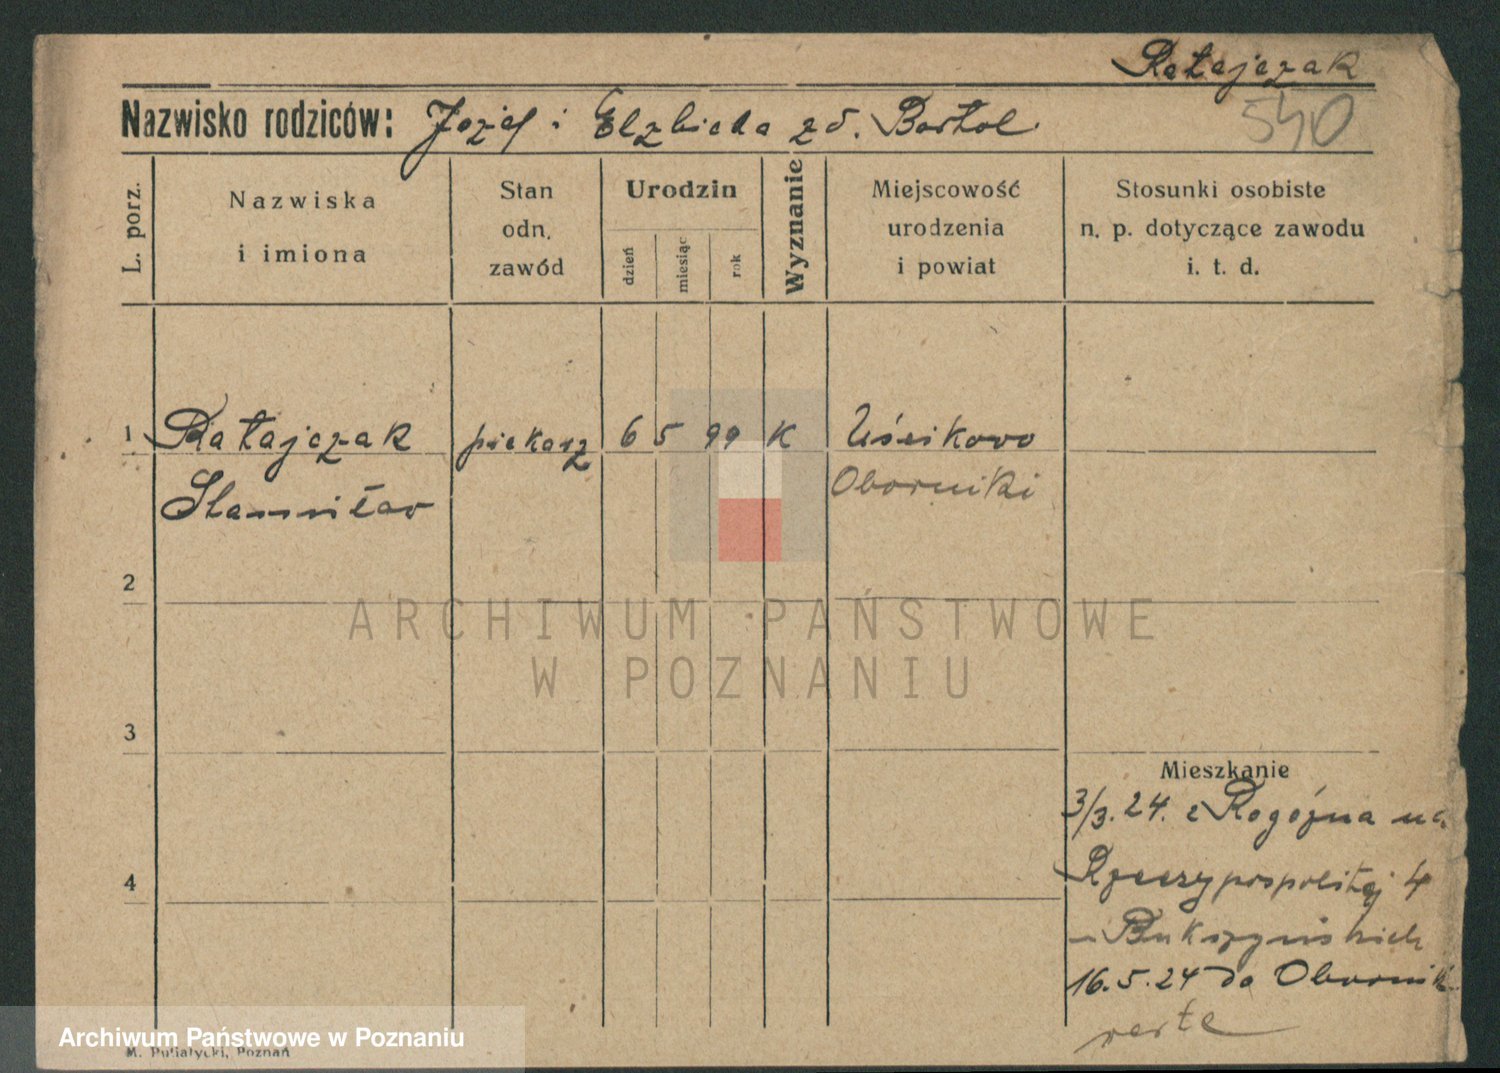 Ratajczak
540
Nazwisko rodziców: Józef i Elzbieta zd. Bartol
L. porz.
Nazwiska
i imiona
Stan
odn.
zawód
Urodzin
dzień
miesiąc
rok
Wyznanie
Miejscowość
urodzenia
i powiat
Stosunki osobiste
n. p. dotyczące zawodu
i. t. d.
1 Ratajczak piekarz 6 5 99 K Uścikowo
Stanisław Oborniki
2
3
4
Mieszkanie
3/3. 24. z Rogóźna na
Rzeczypospolitej 4
16.5.24 do Obornik
verte
ARCHIWUM PAŃSTWOWE
W POZNANIU
Archiwum Państwowe w Poznaniu
M. Putiatycki, Poznań